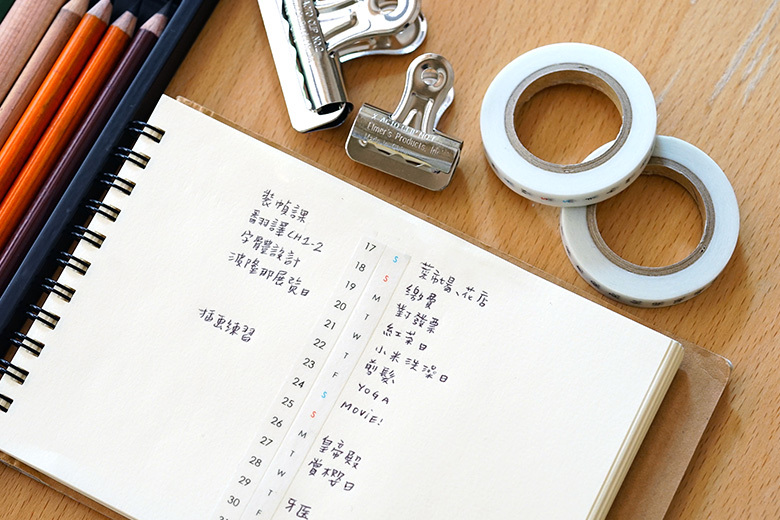 X-ACTO
Elmer's Products, Inc
裝幀課
CH1-2
字體設計
波隆那展
插畫練習
17 S
18 S
19 M
20 T
21 W
22 T
23 F
24 S
25 S
26 M
27 T
28 W
29 T
30 F
菜市場、花店
繳費
對發票
小米洗澡日
剪髮
YOGA
MOVIE!
皇帝殿
賞櫻日
牙醫